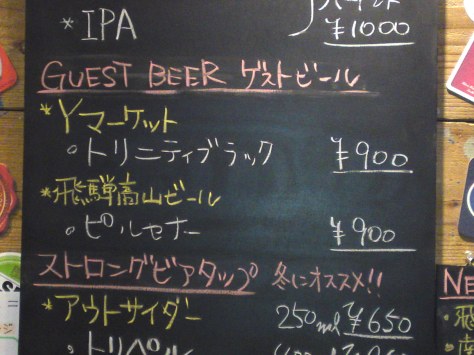 *IPA
¥1000
GUEST BEER ゲストビール
*Yマーケット
・トリニティブラック ¥900
*飛騨高山ビール
・ピルセナー ¥900
ストロングビアタップ 冬にオススメ!!
*アウトサイダー 250ml ¥650
・トリペル
NE
*飛